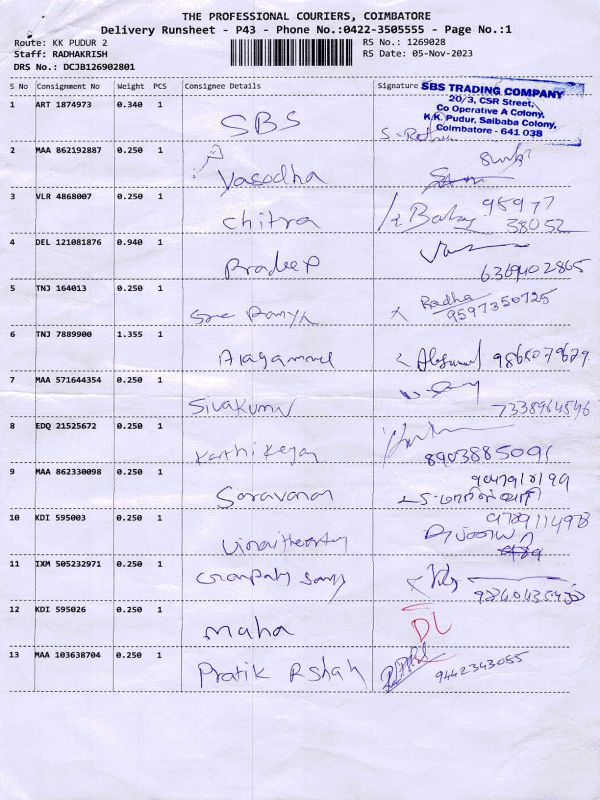 THE PROFESSIONAL COURIERS, COIMBATORE
Delivery Runsheet - P43 - Phone No.:0422-3505555 - Page No.:1
Route: KK PUDUR 2
RS No.: 1269028
Staff: RADHAKRISH
RS Date: 05-Nov-2023
DRS No.: DCJB126902801
S No Consignment No Weight PCS Consignee Details Signature
SBS TRADING COMPANY
20/3, CSR Street,
Co Operative A Colony,
K.K. Pudur, Saibaba Colony,
Coimbatore - 641 038
1 ART 1874973 0.340 1 SBS
2 MAA 862192887 0.250 1 Vasodha
3 VLR 4868007 0.250 1 Chitra 95977
38052
4 DEL 121081876 0.940 1 Pradeep
6369402865
5 TNJ 164013 0.250 1 Sree Ramya Radha
9597350725
6 TNJ 7889900 1.355 1 9865079629
7 MAA 571644354 0.250 1 Sivakumar
7338964546
8 EDQ 21525672 0.250 1 Karthikeyan
8903885091
9 MAA 862330098 0.250 1 Saravanan
10 KDI 595003 0.250 1
11 IXM 505232971 0.250 1
12 KDI 595026 0.250 1 Maha DL
13 MAA 103638704 0.250 1 Pratik R Shah 9442343055